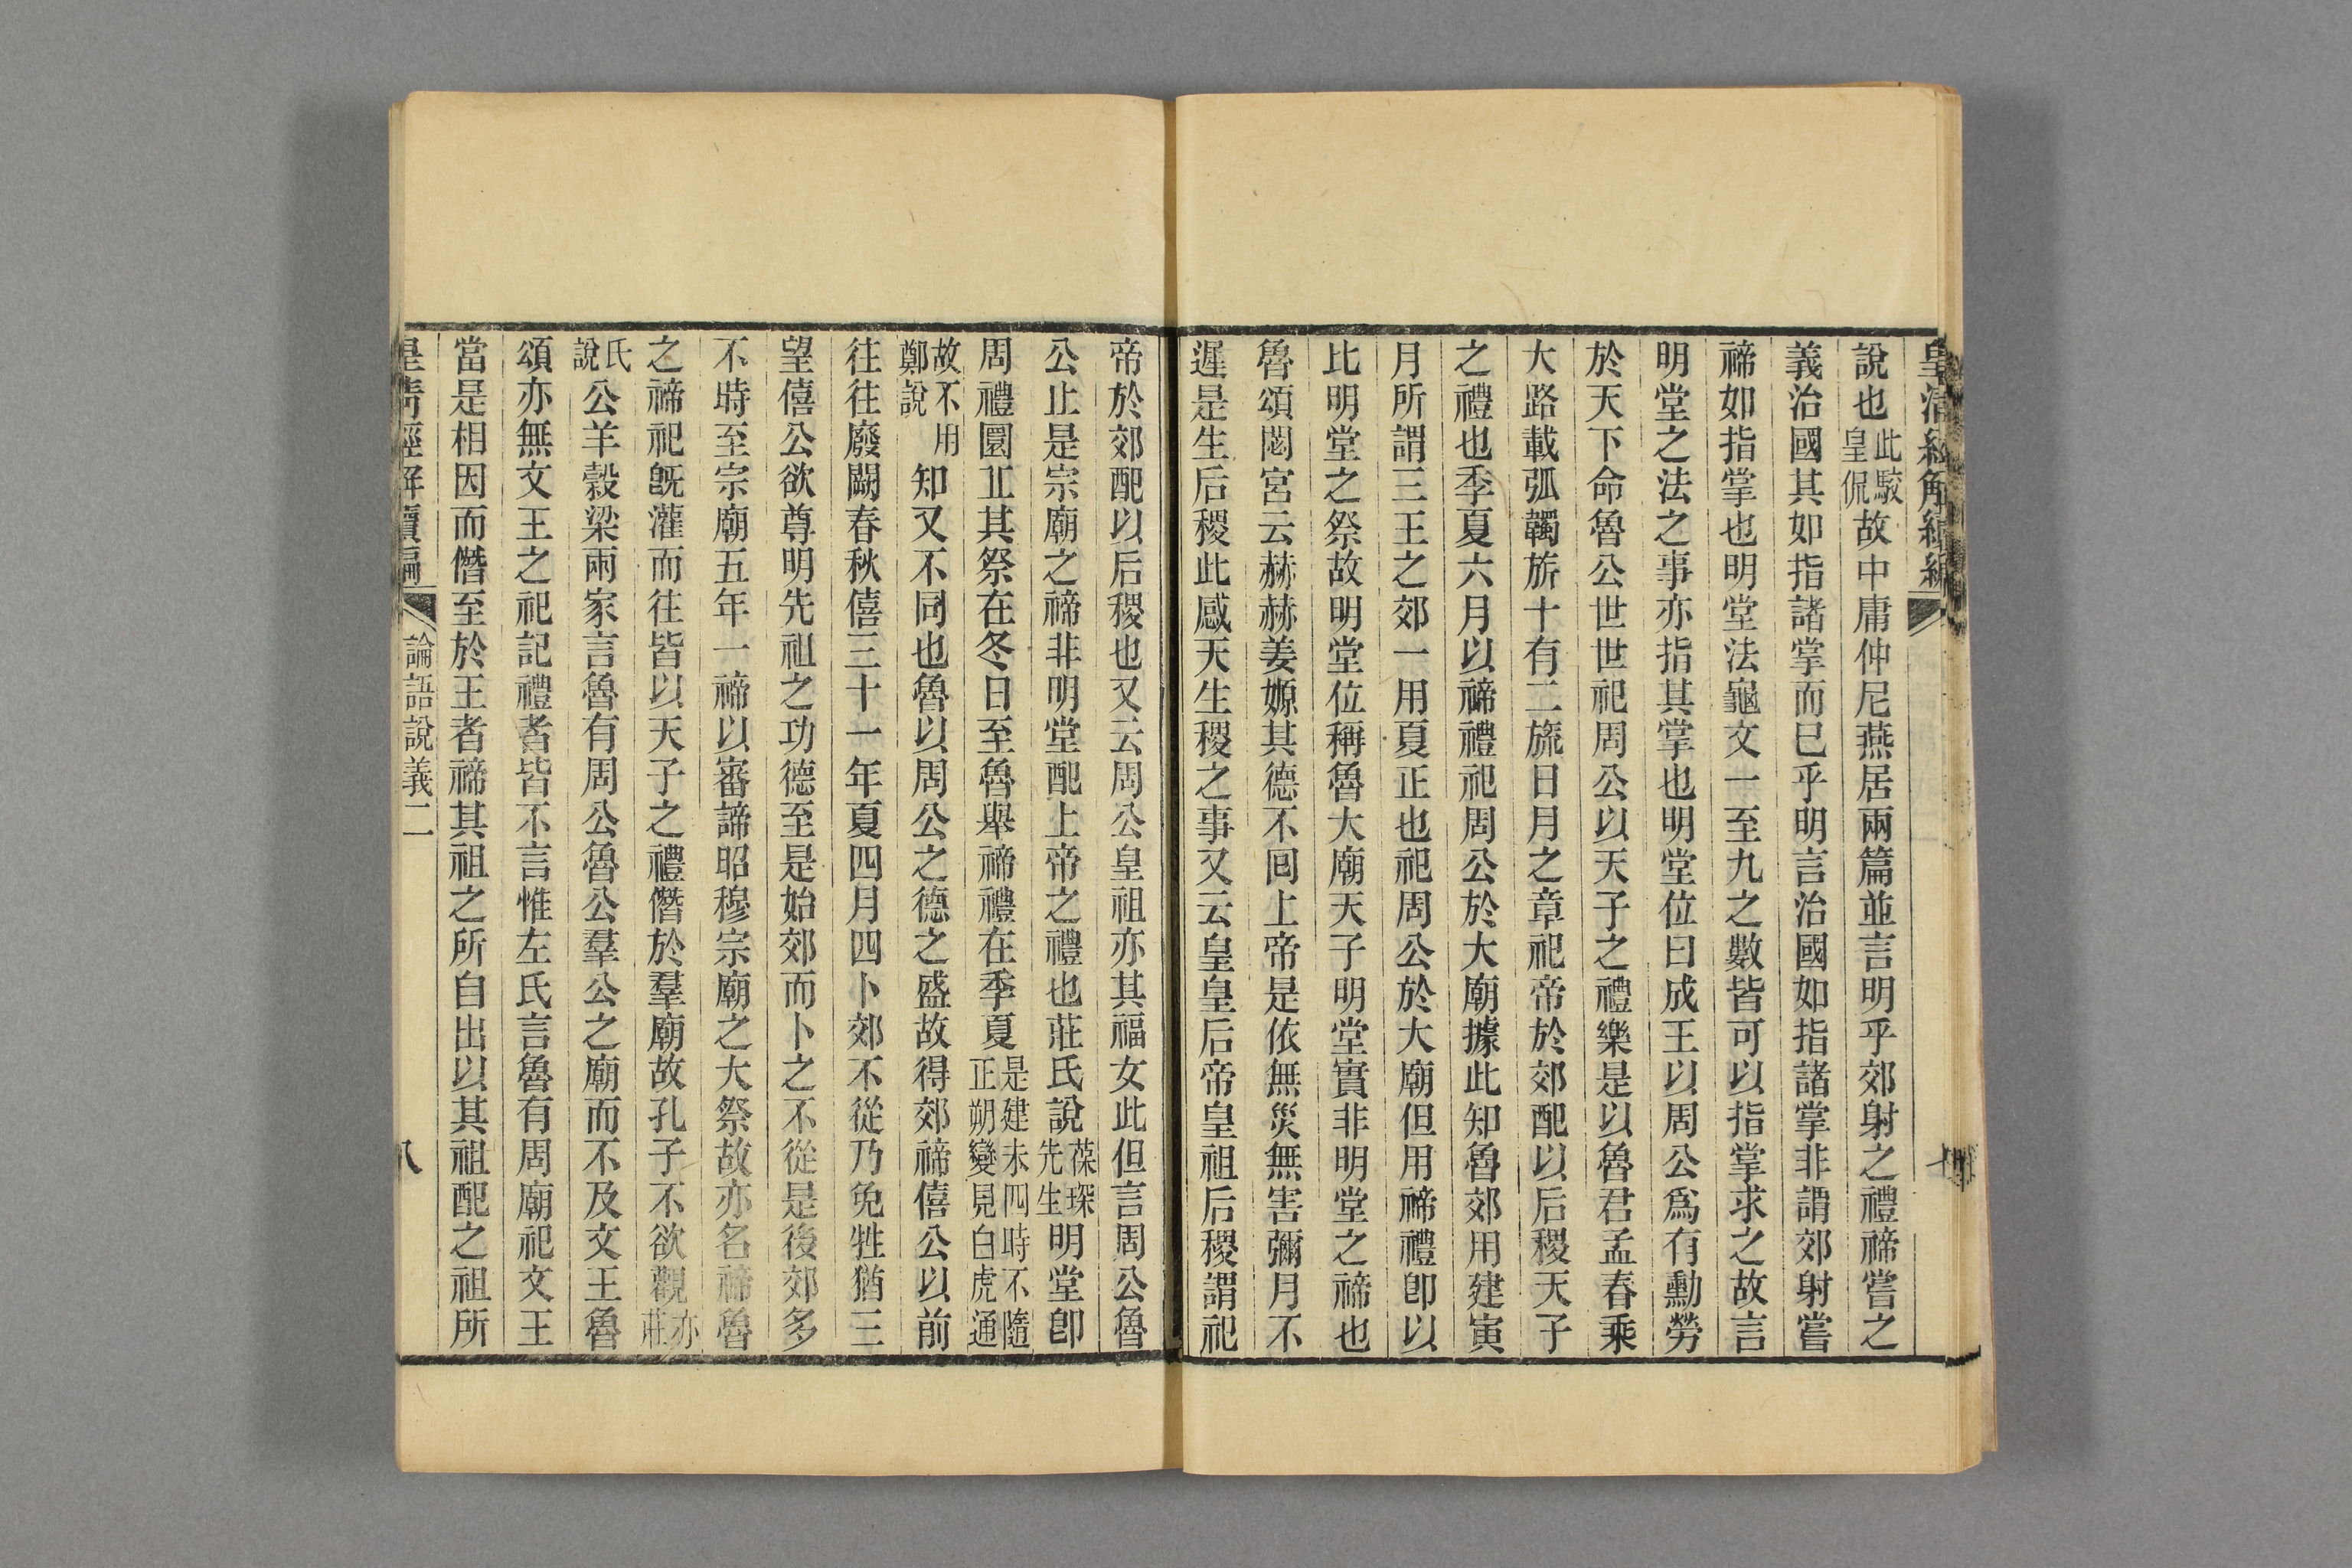 皇清經解續編
說也此駮皇侃故中庸仲尼燕居兩篇並言明乎郊射之禮禘嘗之
義治國其如指諸掌而已乎明言治國如指諸掌非謂郊射嘗
禘如指掌也明堂法龜文一至九之數皆可以指掌求之故言
明堂之法之事亦指其掌也明堂位曰成王以周公爲有勳勞
於天下命魯公世世祀周公以天子之禮樂是以魯君孟春乘
大路載弧韣旂十有二旒日月之章祀帝於郊配以后稷天子
之禮也季夏六月以禘禮祀周公於大廟據此知魯郊用建寅
月所謂三王之郊一用夏正也祀周公於大廟但用禘禮卽以
比明堂之祭故明堂位稱魯大廟天子明堂實非明堂之禘也
魯頌閟宮云赫赫姜嫄其德不回上帝是依無災無害彌月不
遲是生后稷此感天生稷之事又云皇皇后帝皇祖后稷謂祀
帝於郊配以后稷也又云周公皇祖亦其福女此但言周公魯
公止是宗廟之禘非明堂配上帝之禮也莊氏說葆琛先生明堂卽
周禮圜丠其祭在冬日至魯舉禘禮在季夏是建未四時不隨正朔變見白虎通
故不用鄭說知又不同也魯以周公之德之盛故得郊禘僖公以前
往往廢闕春秋僖三十一年夏四月四卜郊不從乃免牲猶三
望僖公欲尊明先祖之功德至是始郊而卜之不從是後郊多
不時至宗廟五年一禘以審諦昭穆宗廟之大祭故亦名禘魯
之禘祀旣灌而往皆以天子之禮僭於羣廟故孔子不欲觀亦莊
氏說公羊穀梁兩家言魯有周公魯公羣公之廟而不及文王魯
頌亦無文王之祀記禮者皆不言惟左氏言魯有周廟祀文王
當是相因而僭至於王者禘其祖之所自出以其祖配之祖所
皇清經解續編 論語說義二 八